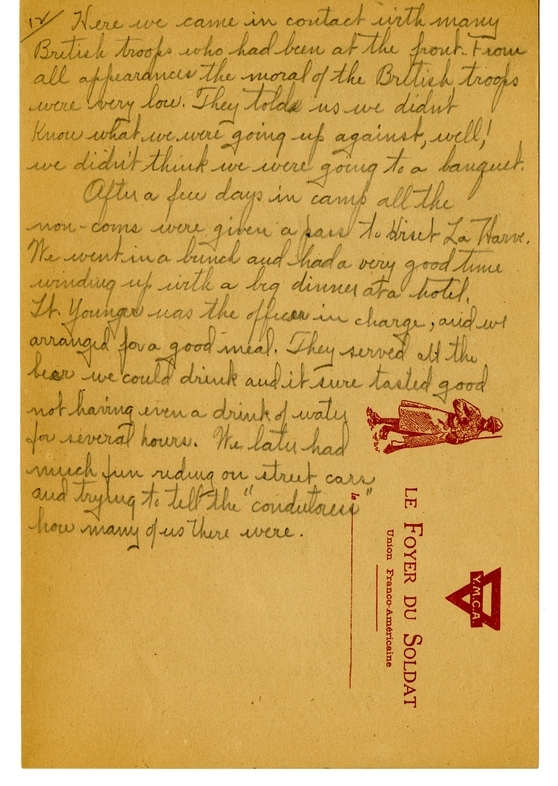 12/ Here we came in contact with many
British troops who had been at the front. From
all appearances the moral of the British troops
were very low. They told us we didnt
know what we were going up against, well!
we didn't think we were going to a banquet.
After a few days in camp all the
non-coms were given a pass to La Harve.
We went in a bunch and had a very good time
winding up with a big dinner at a hotel.
Lt. Younger was the officer in charge, and we
arranged for a good meal. They served all the
beer we could drink and it sure tasted good
not having even a drink of water
for several hours. We later had
much fun riding on street cars
and trying to tell the "condutoress"
how many of us there were.
le
LE FOYER DU SOLDAT
Union Franco-Américaine
Y.M.C.A.